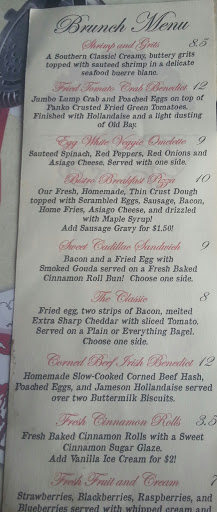 Brunch Menu
Shrimp and Grits 8.5
A Southern Classic! Creamy, buttery grits
topped with sauteed shrimp in a delicate
seafood buerre blanc.
Fried Tomato Crab Benedict 12
Jumbo Lump Crab and Poached Eggs on top of
Panko Crusted Fried Green Tomatoes.
Finished with Hollandaise and a light dusting
of Old Bay.
Egg White Veggie Omelette 9
Sauteed Spinach, Red Peppers, Red Onions and
Asiago Cheese. Served with one side.
Bistro Breakfast Pizza 10
Our Fresh, Homemade, Thin Crust Dough
topped with Scrambled Eggs, Sausage, Bacon,
Home Fries, Asiago Cheese, and drizzled
with Maple Syrup!
Add Sausage Gravy for $1.50!
Sweet Cadillac Sandwich 9
Bacon and a Fried Egg with
Smoked Gouda served on a Fresh Baked
Cinnamon Roll Bun! Choose one side.
The Classic 8
Fried egg, two strips of Bacon, melted
Extra Sharp Cheddar with sliced Tomato.
Served on a Plain or Everything Bagel.
Choose one side.
Corned Beef Irish Benedict 12
Homemade Slow-Cooked Corned Beef Hash,
Poached Eggs, and Jameson Hollandaise served
over two Buttermilk Biscuits.
Fresh Cinnamon Rolls 3.5
Fresh Baked Cinnamon Rolls with a Sweet
Cinnamon Sugar Glaze.
Add Vanilla Ice Cream for $2!
Fresh Fruit and Cream 7
Strawberries, Blackberries, Raspberries, and
Blueberries served with whipped cream and